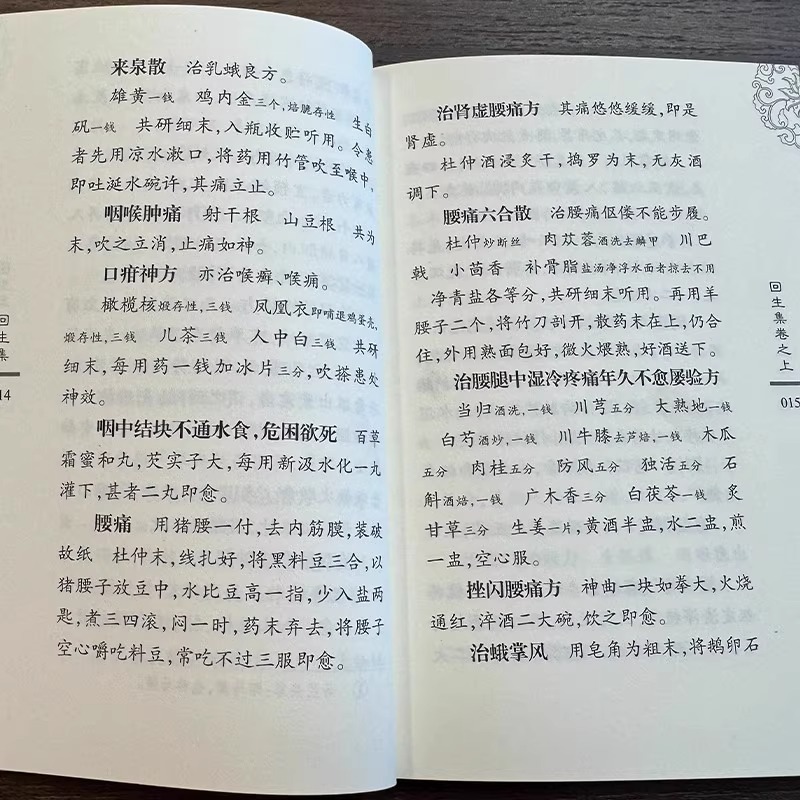 来泉散　治乳蛾良方。
雄黄一钱　鸡内金三个,焙脆存性　生白
矾一钱　共研细末,入瓶收贮听用。令患
者先用凉水漱口,将药用竹管吹至喉中,
即吐涎水碗许,其痛立止。
咽喉肿痛　射干根　山豆根　共为
末,吹之立消,止痛如神。
口疳神方　亦治喉癣、喉痈。
橄榄核煅存性,三钱　凤凰衣即哺退鸡蛋壳,
煅存性,三钱　儿茶三钱　人中白三钱　共研
细末,每用药一钱加冰片三分,吹搽患处
神效。
咽中结块不通水食,危困欲死　百草
霜蜜和丸,芡实子大,每用新汲水化一丸
灌下,甚者二丸即愈。
腰痛　用猪腰一付,去内筋膜,装破
故纸　杜仲末,线扎好,将黑料豆三合,以
猪腰子放豆中,水比豆高一指,少入盐两
匙,煮三四滚,闷一时,药末弃去,将腰子
空心嚼吃料豆,常吃不过三服即愈。
回生集
14
治肾虚腰痛方　其痛悠悠缓缓,即是
肾虚。
杜仲酒浸炙干,捣罗为末,无灰酒
调下。
腰痛六合散　治腰痛伛偻不能步履。
杜仲炒断丝　肉苁蓉酒洗去鳞甲　川巴
戟　小茴香　补骨脂盐汤净浮水面者掠去不用
净青盐各等分,共研细末听用。再用羊
腰子二个,将竹刀剖开,散药末在上,仍合
住,外用熟面包好,微火煨熟,好酒送下。
治腰腿中湿冷疼痛年久不愈屡验方
当归酒洗,一钱　川芎五分　大熟地一钱
白芍酒炒,一钱　川牛膝去芦焙,一钱　木瓜
五分　肉桂五分　防风五分　独活五分　石
斛酒焙,一钱　广木香三分　白茯苓一钱　炙
甘草三分　生姜一片,黄酒半盅,水二盅,煎
一盅,空心服。
挫闪腰痛方　神曲一块如拳大,火烧
通红,淬酒二大碗,饮之即愈。
治蛾掌风　用皂角为粗末,将鹅卵石
回生集卷之上
015